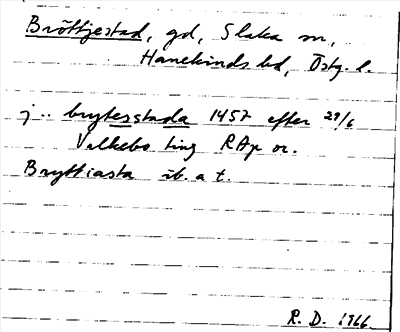 Bröttjestad, gd, Slaka sn,
Hanekinds hd, Östg. l.
j.. brytesstada 1457 efter 29/6
Valkebo ting RAp or.
Bryttiasta ib. a t.
R. D. 1966